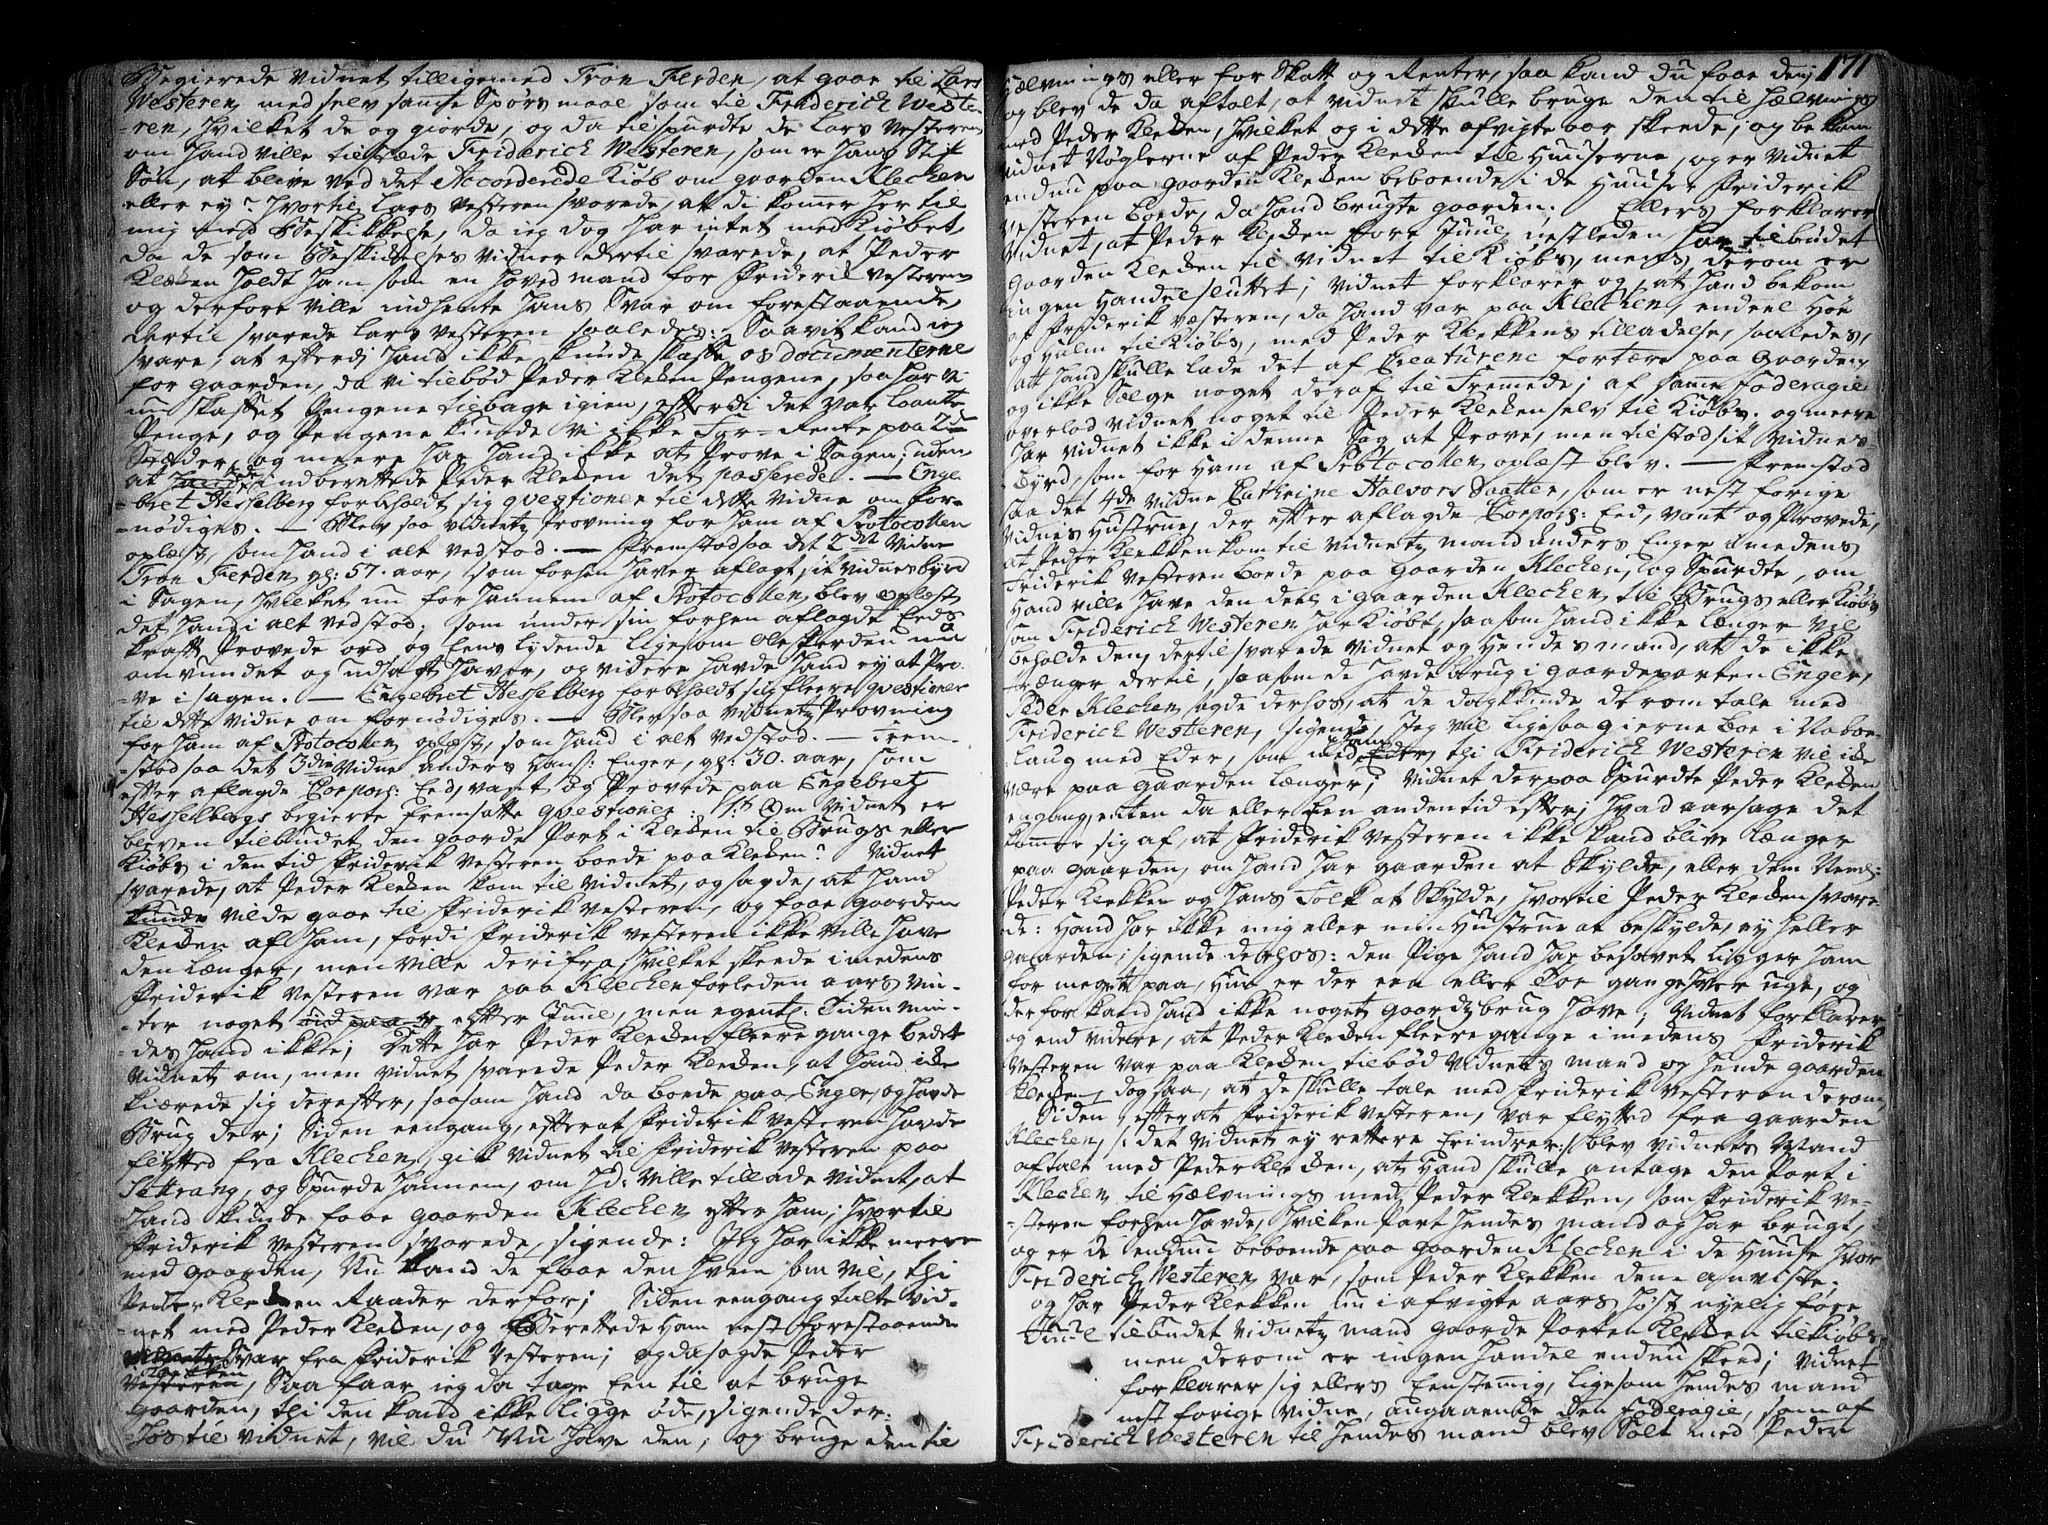 Begierede Vidnet tilligemed Tron Fierden, at gaae til Lars
Westeren med selv samme Spörsmaal som til Friderich Weste-
-ren, hvilket de og giorde, og da tilspurdte de Lars Vesteren
om hand ville tilstæde Friderich Westeren, som er hans Stif
Søn, at blive ved det Accorderede Kiöb om gaarden Klechen
eller ey? hvortil Lars Vesteren svarede, at di kommer her til
mig med Beskikkelse, da ieg dog har intet med Kiöbet,
da de som Beskickelses Vidner dertil svarede, at Peder
Klecken holdt ham som en hoved mand for Friderik Vesteren
og derfore ville indhente hans Svar om forestaaende,
dertil svarede Lars Vesteren saaledes: Saavit kand ieg
svare, at efterdj hand ikke kunde skaffe os documenterne
for gaarden, da vi tilböd Peder Klecken Pengene, saa har vi
nu skaffet Pengene tilbage igien, efterdi det var laante
Penge, og Pengene kunde vi ikke Rente paa 2de
Stæder, og meere har hand ikke at Prove i Sagen; uden
at hand indberettede Peder Klecken det passerede. — Enge-
-bret Hesselberg forbeholdt sig qvestioner til dette Vidne om for-
-nödiges. — Blev saa Vidnetz Provning for ham af Protocollen
oplæst, som hand i alt vedstod. — Fremstod saa det 2det Vidne
Tron Fierden gl: 57. aar, som forhen haver aflagt sit Vidnesbyrd
i Sagen, hvilket nu for hannem af Protocollen blev oplæst
det hand i alt vedstod. som under sin forhen aflagdt Eeds
kraft Provede ord og eenslydende ligesom Ole nu
omvundet og udsagt haver, og videre havde hand ey at Pro-
-ve i sagen. — Engebret Hesselberg forbeholdt sig fleere qvestioner
til dette Vidne om fornödiges. — Blev saa Vidnetz Provning
for ham af Protocollen oplæst, som hand i alt vedstod. — Frem-
-stod saa det 3die Vidne Anders Hans: Enger, gl: 30. aar, som
efter aflagde Corpors: Eed, vant og Provede paa Engebret
Hesselbergs begierte fremsatte qvestioner: 1te Om Vidnet er
bleven tilbudet den gaarde Part i Klecken til Brugs eller
Kiöbs i den tid Friderik Vesteren boede paa Klecken? Vidnet
svarede, at Peder Klecken kom til Vidnet, og sagde, at hand
kunde vilde gaae til Friderik Vesteren, og faae gaarden
Klecken af ham, fordi Friderik Vesteren ikke ville have
den længer, men ville derifra hvilket skeede imedens
Friderik Vesteren var paa Klechen forleden aars Vin-
-ter noget efter Juul, men egentl: Tiden min-
-des hand ikke; Dette har Peder Klecken fleere gange bedet
Vidnet om, men Vidnet svarede Peder Klecken, at hand icke
kiærede sig derefter, saasom hand da boede paa Enger, og havde
Brug der; Siden eengang, efter at Friderik Vesteren havde
flytted fra Klechen gik Vidnet til Friderik Vesteren paa
Sættrang, og Spurde hannem, om hd: ville tillade Vidnet, at
hand kunde faae gaarden Klechen efter ham; hvortil
Friderik Vesteren svarede, sigende: Jeg har ikke meere
med gaarden, Nu kand de faae den hvem som vil, thi
Peder Klecken Raader derfor; Siden eengang talte Vid-
-net med Peder Klecken, og Berettede ham nest forestaaende
Svar fra Friderik Vesteren; og da sagde Peder
Klecken, Saa faar ieg da tage een til at bruge
gaarden, thi den kand ikke ligge öde, sigende der-
-hos til Vidnet, vil du Nu have den, og bruge den til
171
hælvnings eller for Skatt og Renter, saa kand du faae den
og blev de da aftalt, at Vidnet skulle bruge den til hælvnings
med Peder Klecken, hvilket og i dette afvigte aar skeede; og bekom
Vidnet Nöglerne af Peder Klecken til Huuserne, og er Vidnet
endnu paa gaarden Klecken beboende i de Huuser Friderik
Vesteren boede, da hand brugte gaarden. Ellers forklarer
Vidnet, at Peder Klecken fore Juul nestleden har tilbudet
gaarden Klecken til Vidnet til Kiöbs, mens derom er
ingen Handel sluttet; Vidnet forklarer og, at hand bekom
af Friderik Vesteren, da hand var paa Klechen endeel Höe
og halm til Kiöbs, med Peder Klekkens tilladelse, saaledes,
att hand skulle lade det af Creaturene fortære paa gaarden
og ikke Sælge noget deraf til Fremede; af samme föderagie
overlod Vidnet noget til Peder Klecken selv til Kiöbs. og meere
har Vidnet ikke i denne Sag at Prove, men tilstod sit Vidnes
-byrd, som for ham af Protocollen oplæst blev. — Fremstod
saa det 4de Vidne Cathrine Halvors Daatter, som er nest forige
Vidnes Hustrue, der efter aflagde Corpors: Eed, vant og Provede,
at Peder Klekken kom til Vidnetz mand Anders Enger imedens
Friderik Vesteren boede paa gaarden Klechen, og Spurdte, om
Hand ville have den deel i gaarden Klechen til Brugs eller Kiöbs
som Friderich Westeren har Kiöbt, saasom hand ikke længer vil
beholde den, dertil svarede Vidnet og hendes mand, at de ikke
trænger dertil, saasom de havde brug i gaardeparten Enger,
Peder Klechen sagde derhos, at de dog kunde derom tale med
Friderich Westeren, sigende, Jeg vil ligesaa gierne boe i Naboe-
-laug med Eder, som med ham, thi Friderich Westeren vil icke
være paa gaarden længer; Vidnet derpaa Spurdte Peder Klecken
engang, enten da eller een anden tid efter, hvad aarsage det
kommer sig af, at Friderik Vesteren ikke kand blive længer
paa gaarden, om hand har gaarden at Skylde, eller dem Neml:
Peder Klekken og hans Folk at Skylde, hvortil Peder Klecken svare-
-de: Hand har ikke mig eller min Hustrue at beskylde, ey heller
gaarden; sigende derhos: den Pige hand har besovet ligger ham
for meget paa, Hun er der een eller toe gange hver uge, og
derfor kand hand ikke noget gaardz brug have; Vidnet forklarer
og end videre, at Peder Klecken fleere gange imedens Friderik
Vesteren var paa Klecken tilböd Vidnetz mand og hende gaarden
Klecken, dog saa, at de skulle tale med Friderik Vesteren derom,
Siden efter at Friderik Vesteren, var flytted fra gaarden
Klechen, /: det Vidnet ey rettere Erindrer :/ blev Vidnets Mand
aftalt med Peder Klecken, at Hand skulle antage den Part i
Klechen til Hælvnings med Peder Klekken, som Friderik Ve-
-steren forhen havde, hvilken Part hendes mand og har brugt,
og er de endnu beboende paa gaarden Klechen i de Huuse hvor
Friderich Westeren var, som Peder Klekken dem anviste;
og har Peder Klekken nu i afvigte aars höst nyelig före
Juul tilbudet Vidnetz mand gaarde Parten Klecken til Kiöbs,
men derom er ingen handel endnu skeed; Vidnet
forklarer sig ellers Eenstemig, ligesom hendes mand
nest forige Vidne, angaaende den föderagie, som af
Friderich Westeren til hendes mand blev Solt med Peder